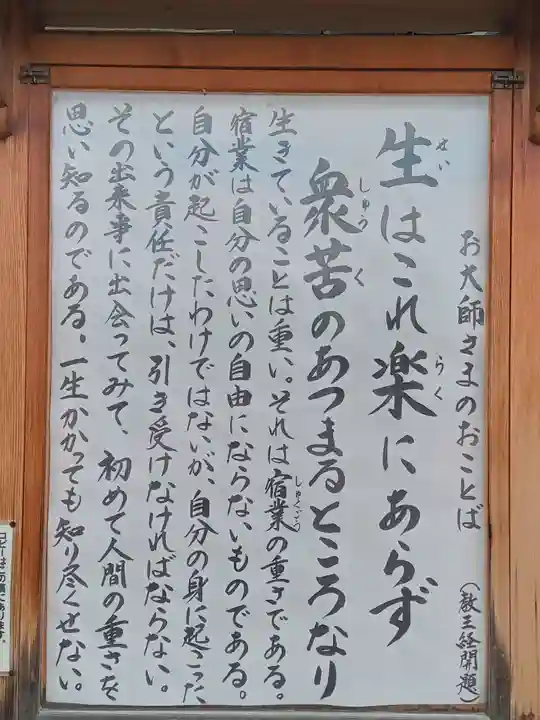 お大師さまのおことば
(教王経開題)
生はこれ楽にあらず
せい
らく
衆苦のあつまるところなり
しゅう
く
生きていることは重い。それは宿業の重さである。
しゅくごう
宿業は自分の思いの自由にならないものである。
自分が起こしたわけではないが、自分の身に起こった
という責任だけは、引き受けなければならない。
その出来事に出会ってみて、初めて人間の重さを
思い知るのである。一生かかっても知り尽くせない。
コピーはこの横にあります。